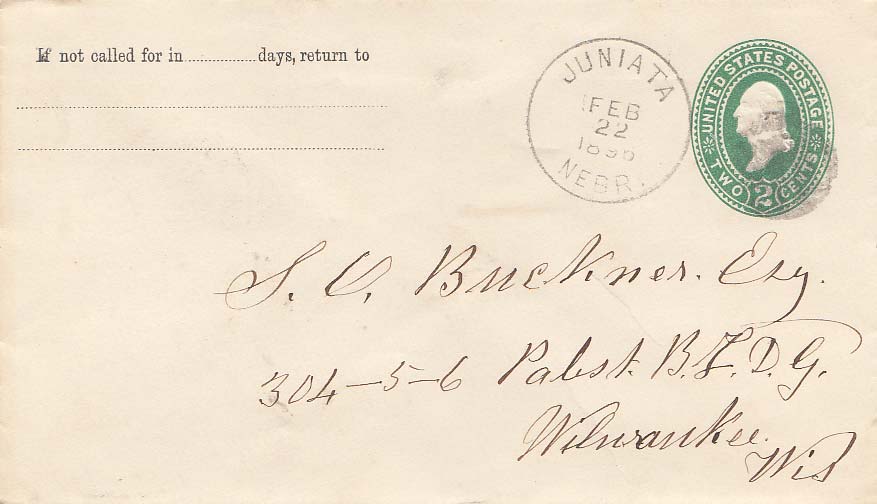 If not called for in ................ days, return to
JUNIATA
FEB
22
NEBR.
UNITED STATES POSTAGE
TWO 2 CENTS
S. C. Buckner. Esq.
304-5-6 Pabst. B.L.D.G.
Milwaukee.
Wis